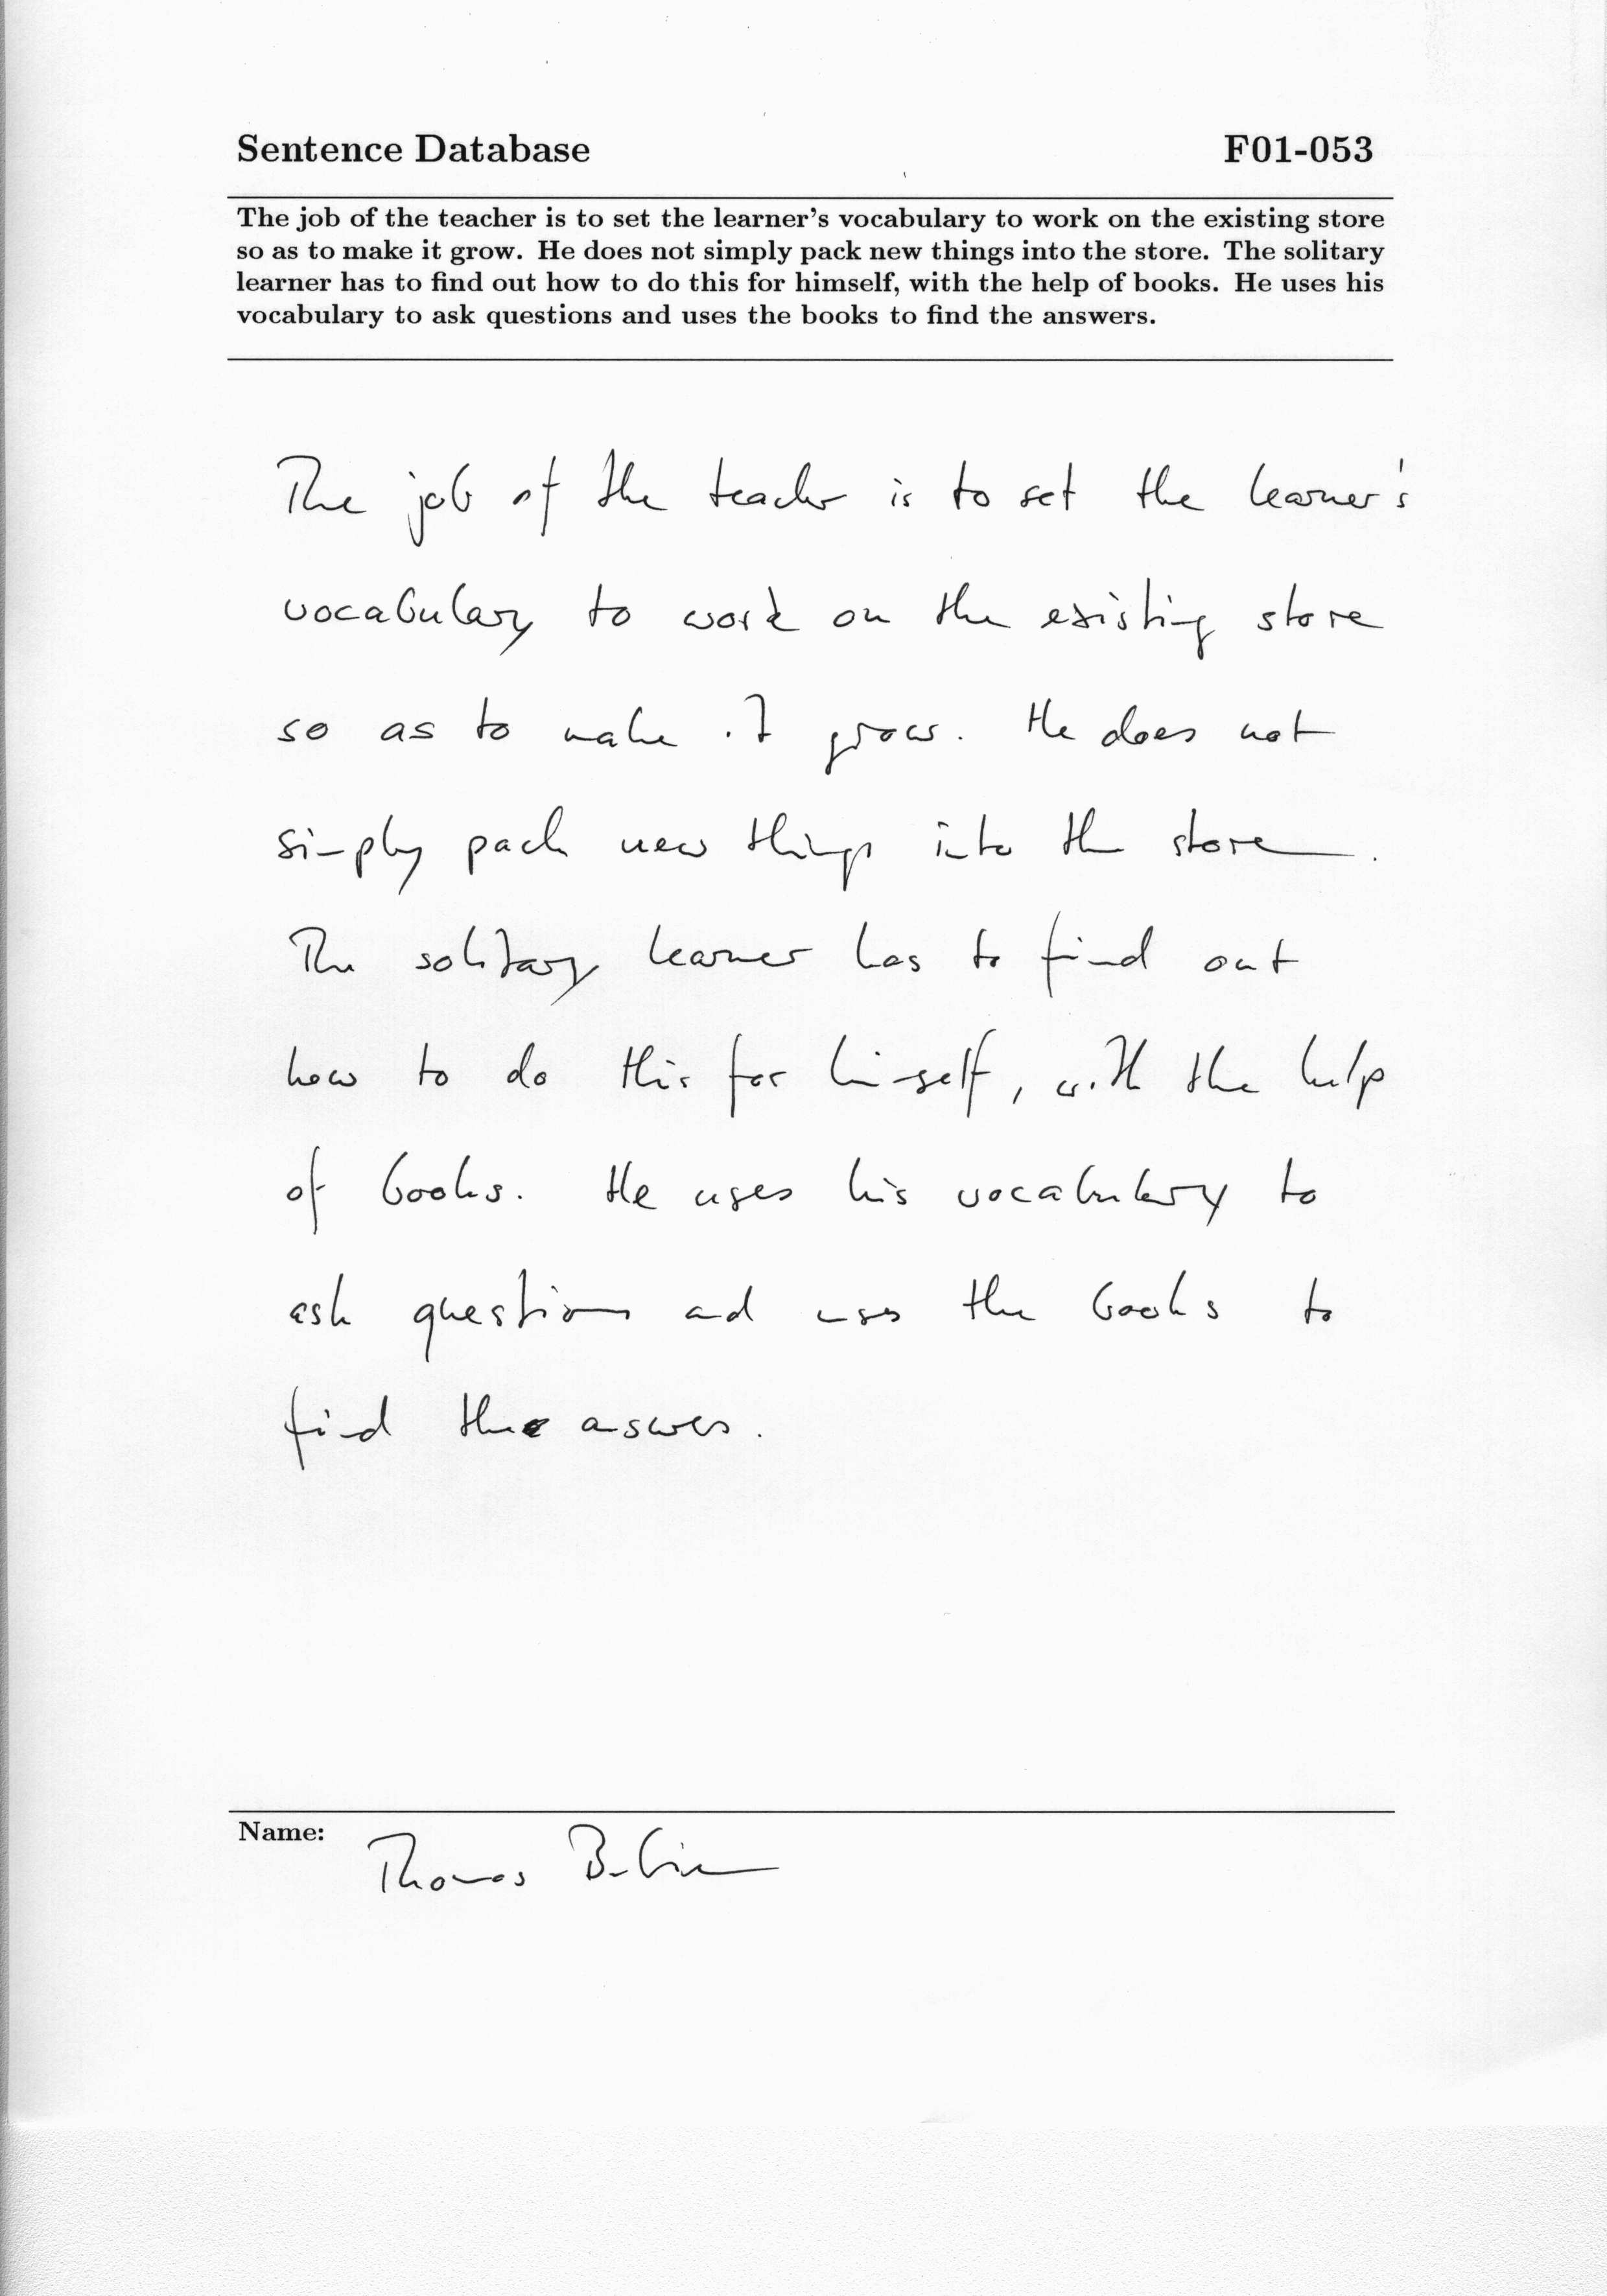 Sentence Database F01-053
The job of the teacher is to set the learner's vocabulary to work on the existing store
so as to make it grow. He does not simply pack new things into the store. The solitary
learner has to find out how to do this for himself, with the help of books. He uses his
vocabulary to ask questions and uses the books to find the answers.
The job of the teacher is to set the learner's
vocabulary to work on the existing store
so as to make it grow. He does not
simply pack new things into the store.
The solitary learner has to find out
how to do this for himself, with the help
of books. He uses his vocabulary to
ask questions and uses the books to
find the answers.
Name: Thomas